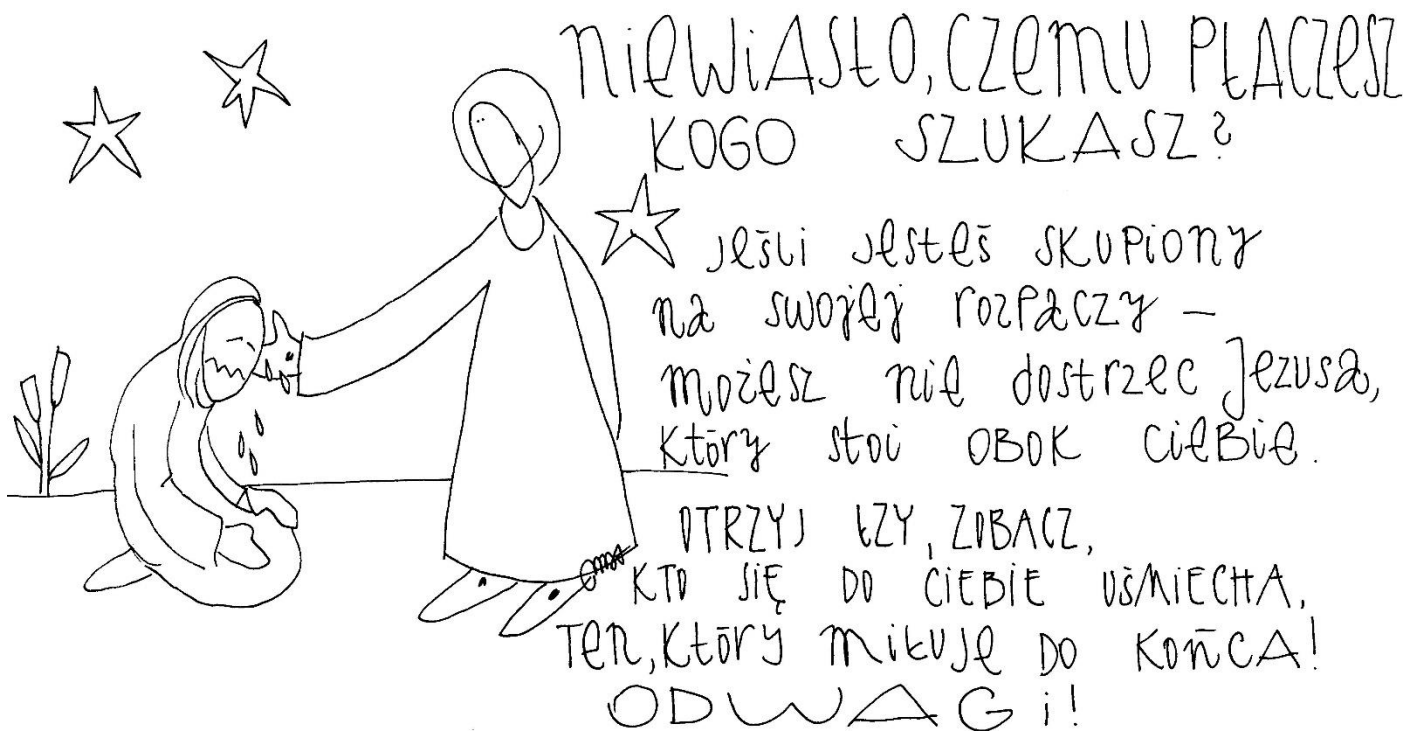 NIEWIASTO, CZEMU PŁACZESZ
KOGO SZUKASZ?
JEŚLI JESTEŚ SKUPIONY
NA SWOJEJ ROZPACZY –
MOŻESZ NIE DOSTRZEC JEZUSA,
KTÓRY STOI OBOK CIEBIE.
OTRZYJ ŁZY, ZOBACZ,
KTO SIĘ DO CIEBIE UŚMIECHA,
TEN, KTÓRY MIŁUJE DO KOŃCA!
ODWAGI!